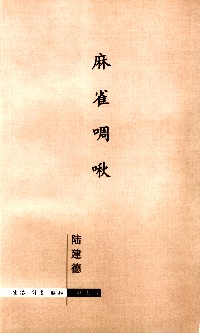 麻雀啁啾
陆建德